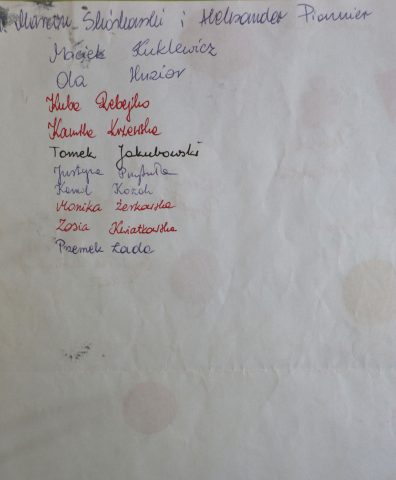 Marcin Skórkowski i Aleksander Pionnier
Maciek Kuklewicz
Ola Huzior
Kuba Rębejko
Kamila Krzewska
Tomek Jakubowski
Justyna Przybyła
Kamil Kozak
Monika Żerkowska
Zosia Kwiatkowska
Przemek Łada